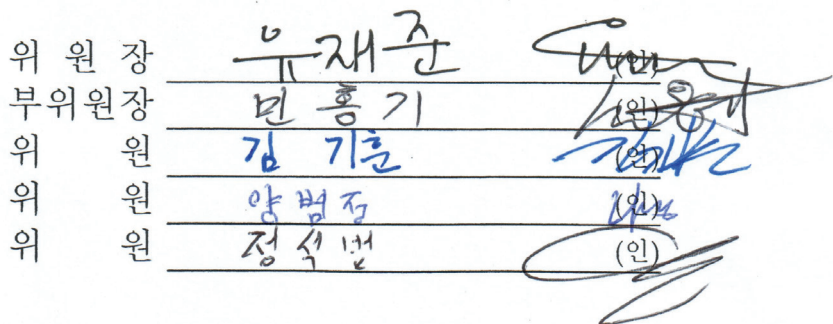 위 원 장 유재준 (인)
부위원장 민홍기 (인)
위 원 김 기훈 (인)
위 원 양범정 (인)
위 원 정석범 (인)